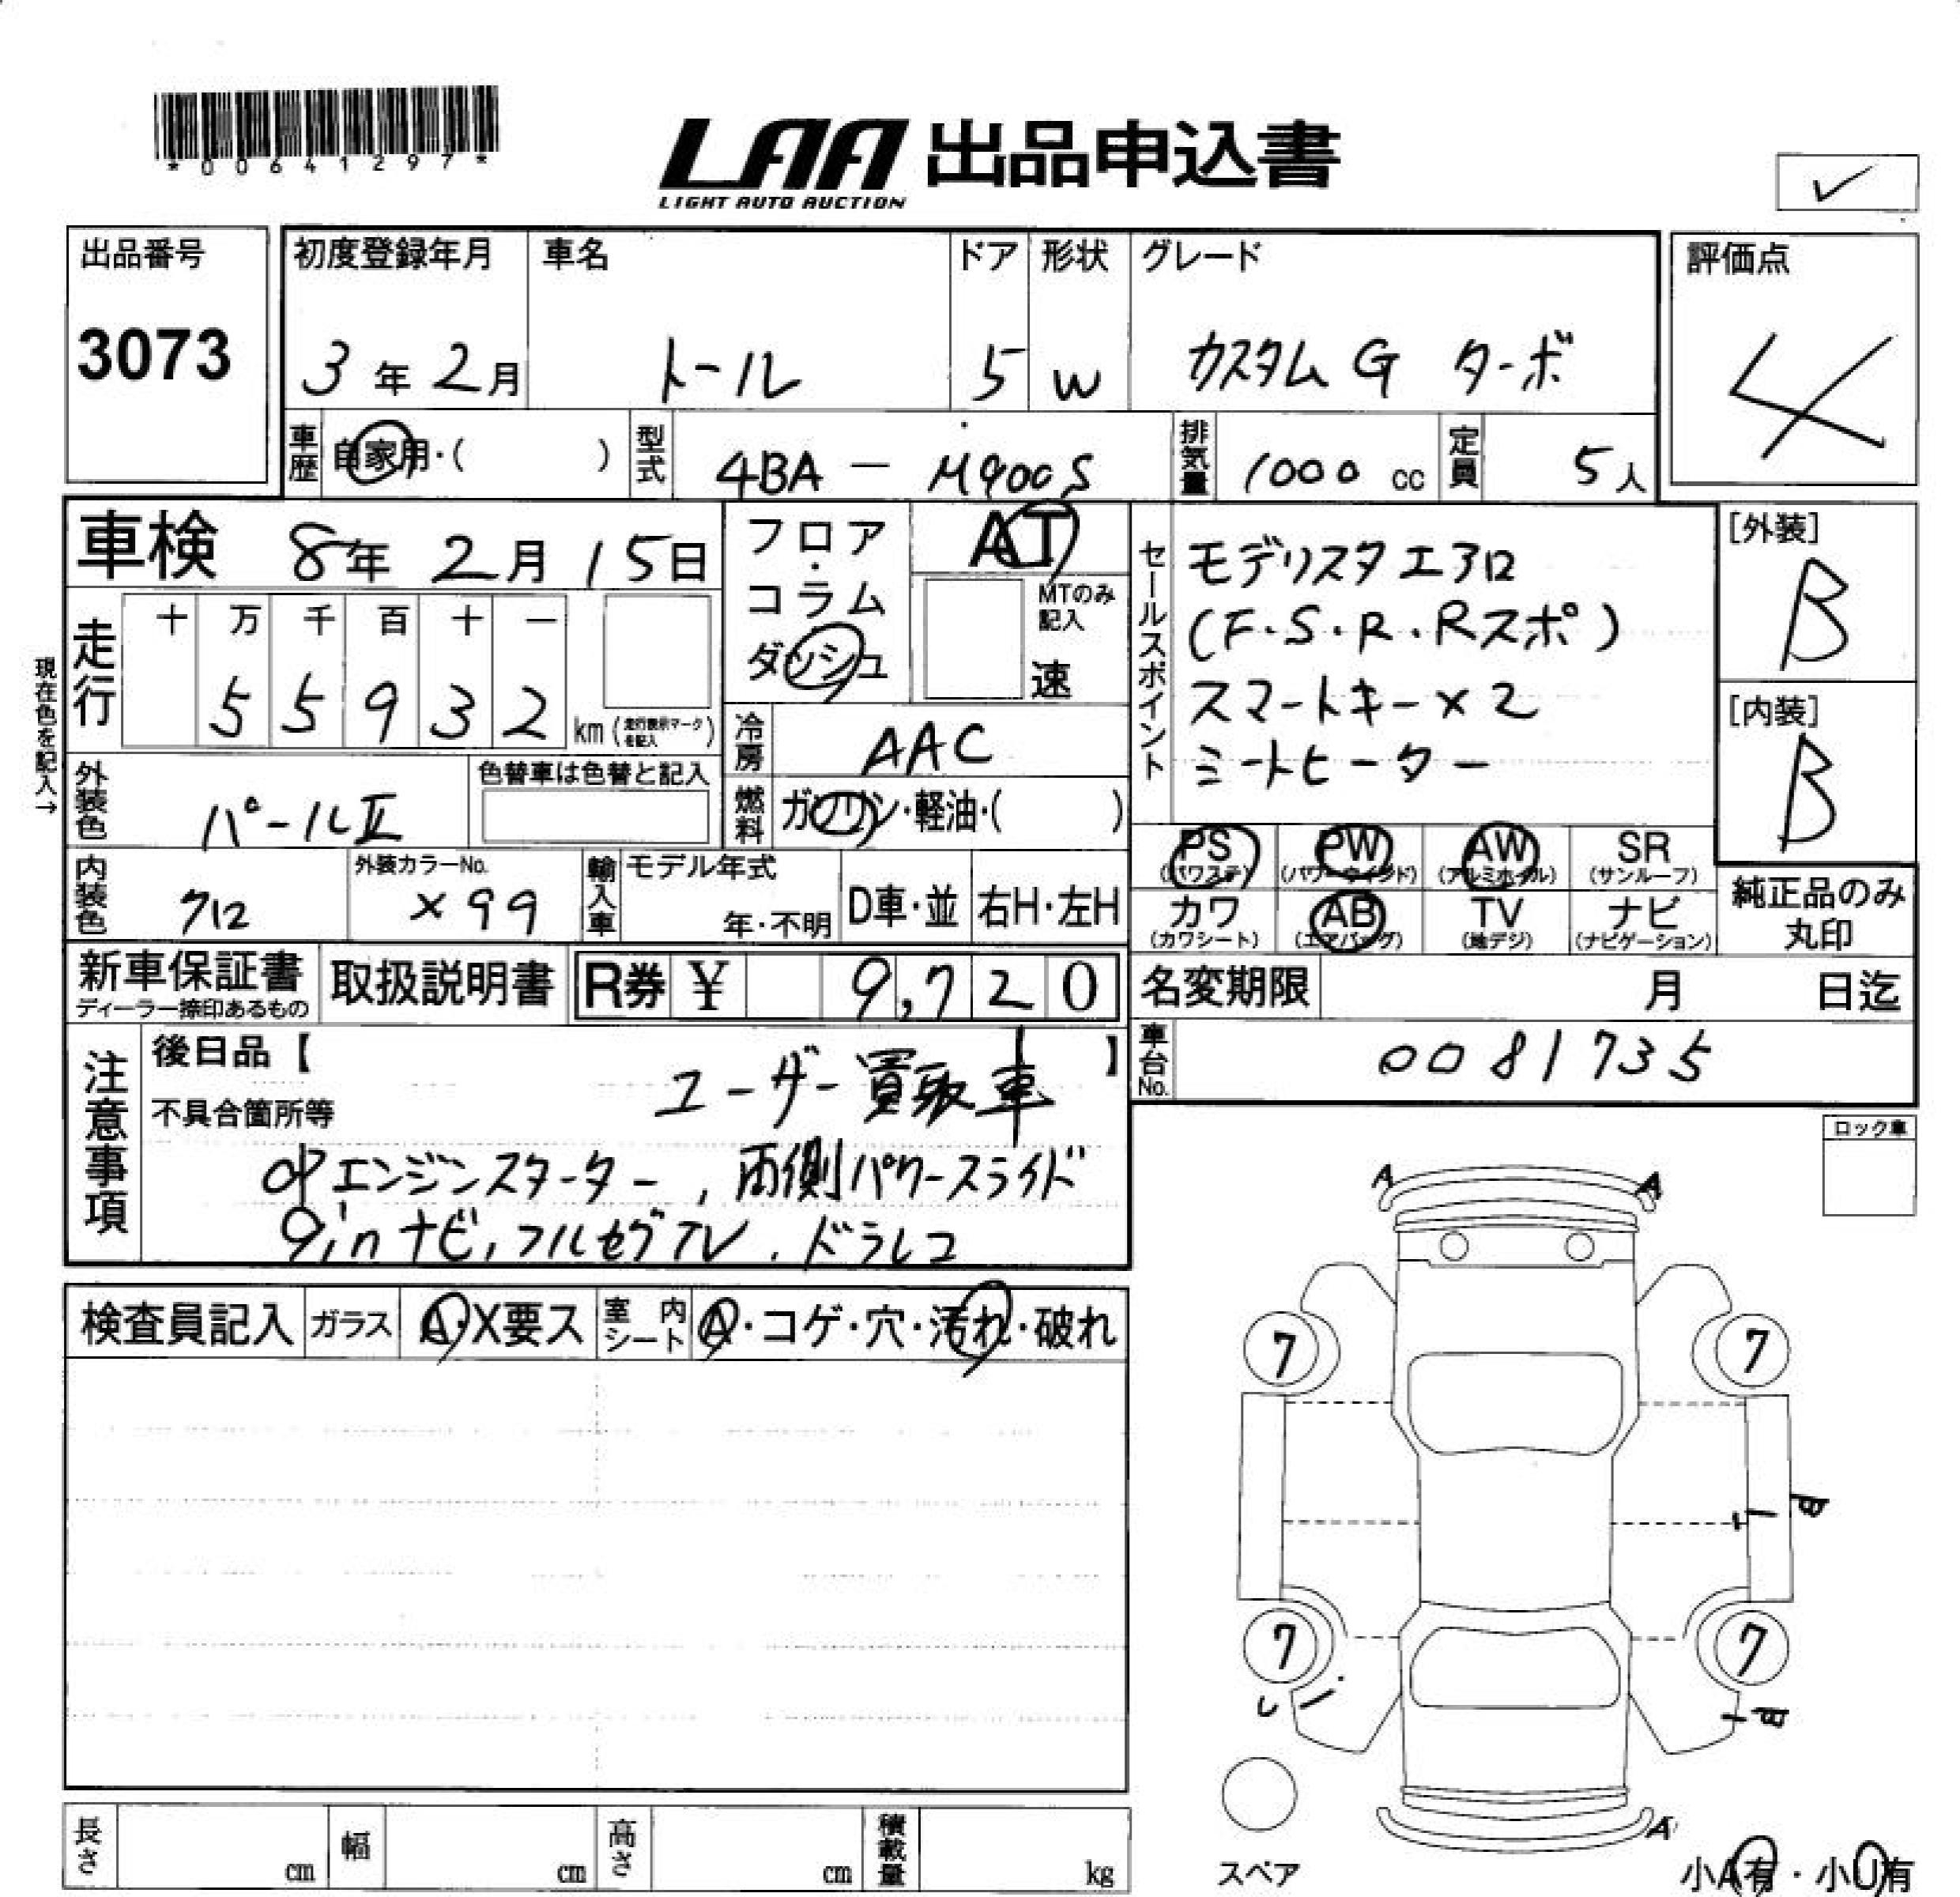 *00641297*
LAA 出品申込書
LIGHT AUTO AUCTION
✓
出品番号
3073
初度登録年月
3年2月
車名
トール
ドア
5
形状
W
グレード
カスタムG ターボ
評価点
4
車歴 自家用・( )
型式 4BA - M900S
排気量 1000 cc
定員 5人
車検 8年 2月 15日
フロア・コラム
ダッシュ
AT
MTのみ記入
速
セールスポイント
モデリスタエアロ
(F・S・R・Rスポ)
スマートキー×2
シートヒーター
[外装]
B
[内装]
B
現在色を記入→
走行 十 万 千 百 十 一
5 5 9 3 2 km (走行表示マークを記入)
冷房 AAC
外装色 パールⅡ
色替車は色替と記入
燃料 ガソリン・軽油・( )
PS (パワステ) PW (パワーウインド) AW (アルミホイル) SR (サンルーフ)
カワ (カワシート) AB (エアバッグ) TV (地デジ) ナビ (ナビゲーション)
純正品のみ
丸印
内装色 クロ
外装カラーNo.
×99
輸入車 モデル年式
年・不明
D車・並
右H・左H
新車保証書
ディーラー捺印あるもの
取扱説明書
R券 ¥ 9,720
名変期限 月 日迄
車台No. 0081735
注意事項
後日品【 】
ユーザー買取車
不具合箇所等
OPエンジンスターター, 両側パワースライド
9inナビ, フルセグTV, ドラレコ
ロック車
検査員記入 ガラス A・X要ス 室内シート A・コゲ・穴・汚れ・破れ
A A
7 7
7 7
A
スペア
小A有・小U有
長さ cm 幅 cm 高さ cm 積載量 kg